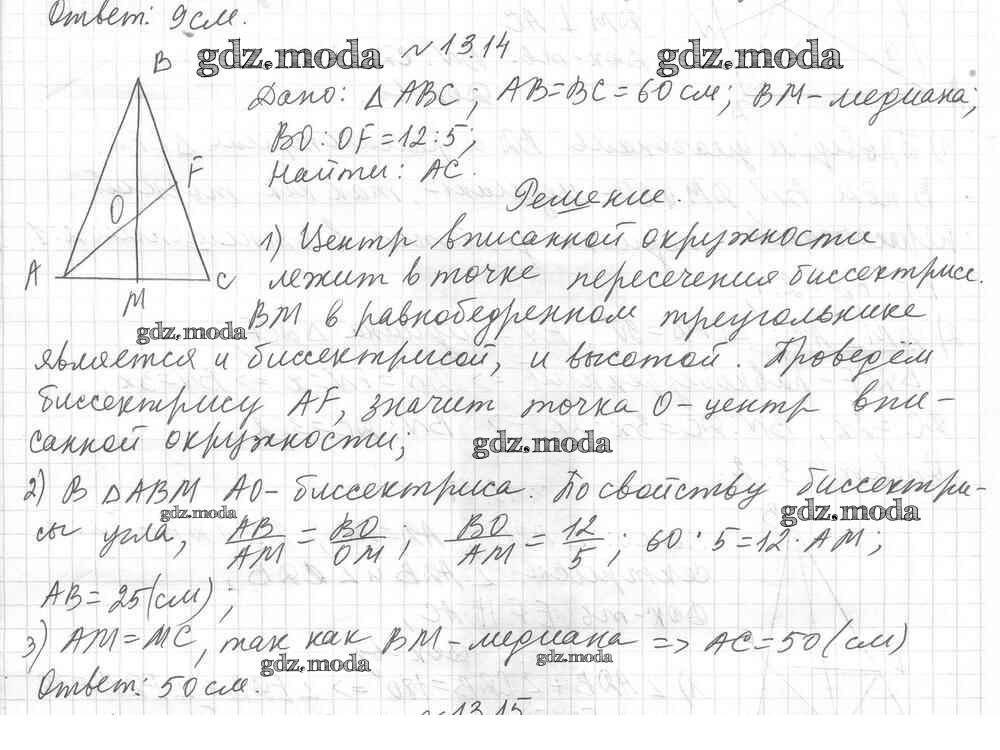 Ответ: 9 см.
gdz.moda
№ 13.14
gdz.moda
B
Дано: △ABC; AB=BC=60 см; BM-медиана;
BO:OF=12:5;
F
Найти: AC.
O
Решение.
1) Центр вписанной окружности
A
C
лежит в точке пересечения биссектрисс.
M
gdz.moda
BM в равнобедренном треугольнике
является и биссектрисой, и высотой. Проведём
биссектрису AF, значит точка O-центр впи-
санной окружности;
gdz.moda
2) В △ABM AO-биссектриса. По свойству биссектри-
gdz.moda
gdz.moda
сы угла, AB/AM = BO/OM; BO/AM = 12/5; 60·5=12·AM;
AB=25(см);
3) AM=MC, так как BM-медиана => AC=50(см)
gdz.moda
gdz.moda
Ответ: 50 см.
№13.15